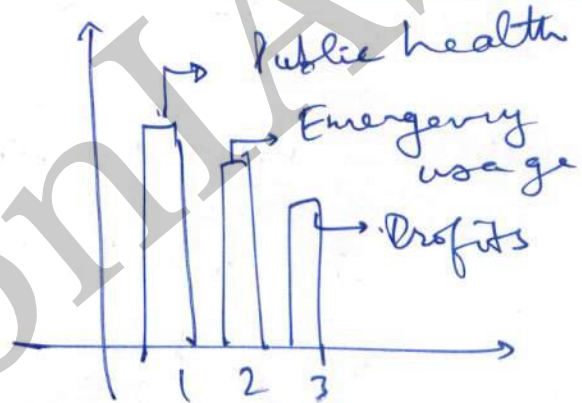 Public health
Emergency
usage
Profits
1 2 3